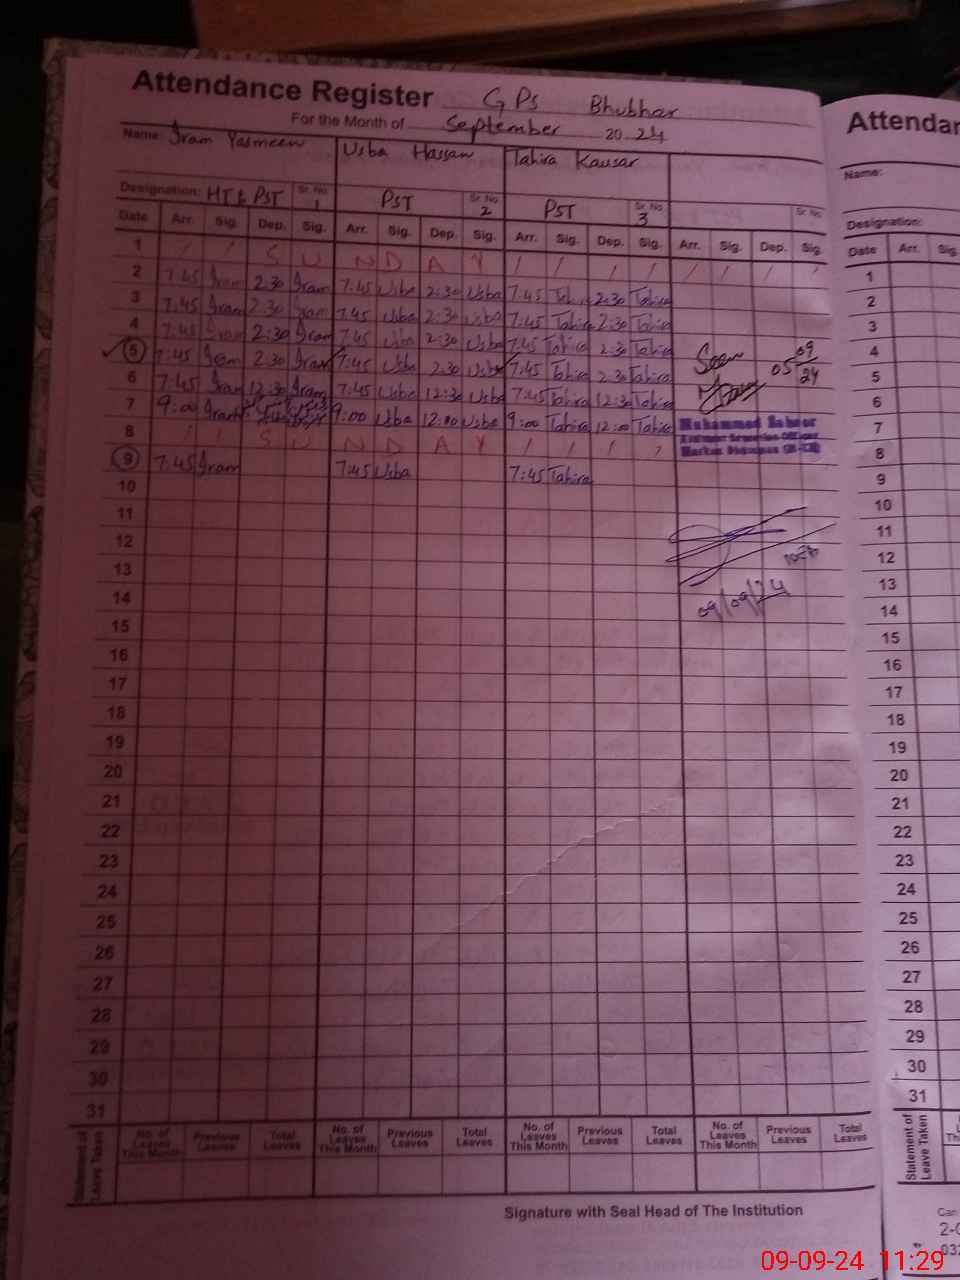 Attendance Register GPS Bhubhar
For the Month of September 2024
Name: Iram Yasmeen Usba Hassan Tahira Kausar
Designation: HT & PST Sr. No. 1 PST Sr. No. 2 PST Sr. No. 3 Sr. No.
Date Arr. Sig. Dep. Sig. Arr. Sig. Dep. Sig. Arr. Sig. Dep. Sig. Arr. Sig. Dep. Sig.
1 / / S U N D A Y / / / / / / / /
2 7:45 Iram 2:30 Iram 7:45 Usba 2:30 Usba 7:45 2:30 Tahira
3 7:45 Iram 2:30 Iram 7:45 Usba 2:30 Usba 7:45 Tahira 2:30 Tahira
4 7:45 Iram 2:30 Iram 7:45 Usba 2:30 Usba 7:45 Tahira 2:30 Tahira
5 7:45 Iram 2:30 Iram 7:45 Usba 2:30 Usba 7:45 Tahira 2:30 Tahira Seen 05 09/24
6 7:45 Iram 12:30 Iram 7:45 Usba 12:30 Usba 7:45 Tahira 12:30 Tahira
7 9:00 Iram 9:00 Usba 12:00 Usba 9:00 Tahira 12:00 Tahira
Muhammad
Markaz
8 / / S U N D A Y / / / /
9 7:45 Iram 7:45 Usba 7:45 Tahira
10
11
12
13
14 09/09/24
15
16
17
18
19
20
21
22
23
24
25
26
27
28
29
30
31
Statement of Leave Taken
No. of Leaves This Month Previous Leaves Total Leaves No. of Leaves This Month Previous Leaves Total Leaves No. of Leaves This Month Previous Leaves Total Leaves No. of Leaves This Month Previous Leaves Total Leaves
Signature with Seal Head of The Institution
Attendar
Name:
Designation:
Date Arr. Sig
1
2
3
4
5
6
7
8
9
10
11
12
13
14
15
16
17
18
19
20
21
22
23
24
25
26
27
28
29
30
31
Statement of Leave Taken
09-09-24 11:29